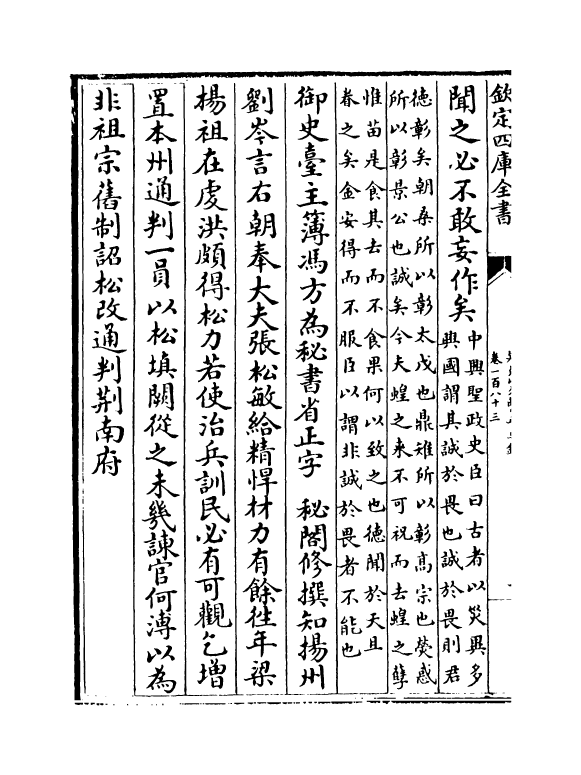 欽定四庫全書
卷一百八十三
聞之必不敢妄作矣中興聖政史臣曰古者以災異多
興國謂其誠於畏也誠於畏則君
德彰矣朝桑所以彰太戊也鼎雉所以彰髙宗也熒惑
所以彰景公也誠矣今夫蝗之来不可祝而去蝗之孽
惟苗是食其去而不食果何以致之也徳聞於天且
眷之矣金安得而不服臣以謂非誠於畏者不能也
御史臺主簿馮方為秘書省正字 秘閣修撰知揚州
劉岑言右朝奉大夫張松敏給精悍材力有餘往年梁
楊祖在虔洪頗得松力若使治兵訓民必有可觀乞增
置本州通判一員以松填闕從之未幾諫官何溥以為
非祖宗舊制詔松改通判荆南府